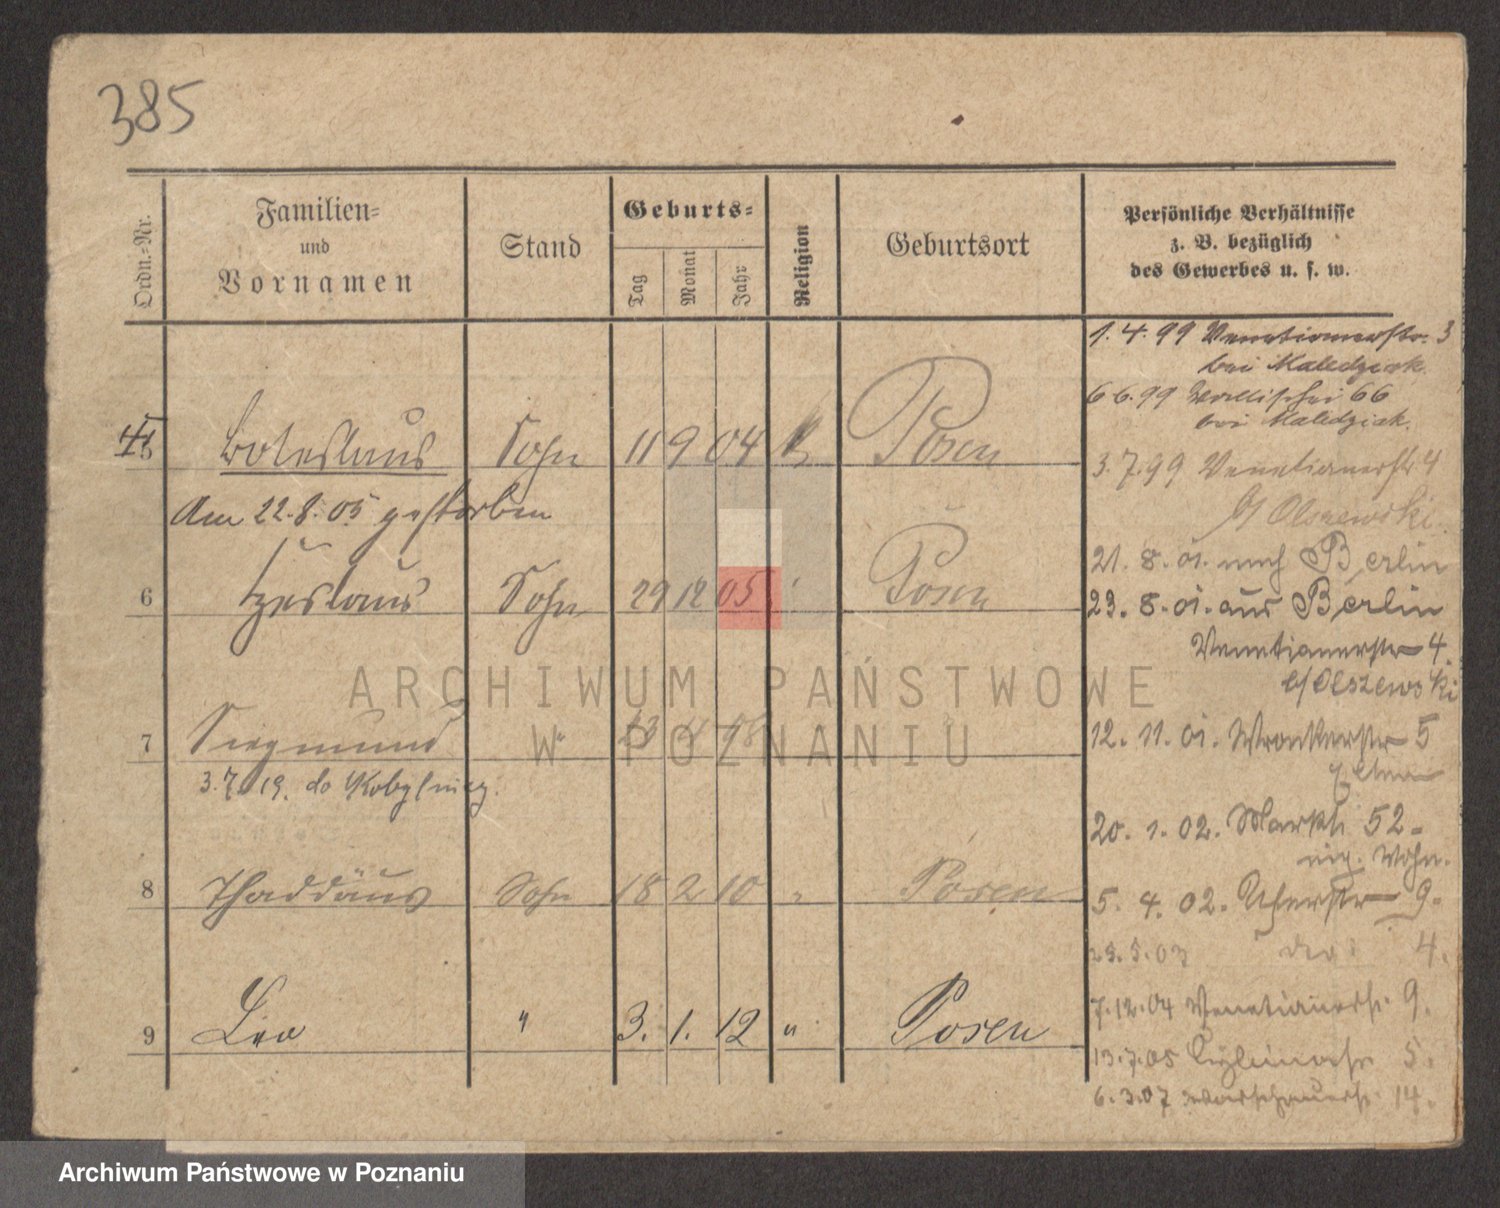 385
Ordn.=Nr.
Familien=
und
Vornamen
Stand
Geburts=
Tag
Monat
Jahr
Religion
Geburtsort
Persönliche Verhältnisse
z. B. bezüglich
des Gewerbes u. s. w.
1. 4. 99 Venetianerstr. 3
bei Maledziak
6 6. 99 Wallischei 66
bei Maledziak.
5 Boleslaus Sohn 11 9 04 k Posen
3. 7. 99 Venetianerstr 4
b/ Olszewski
Am 22. 8. 05 gestorben
21. 8. 01. nach Berlin
6 Czeslaus Sohn 29 12 05 Posen
23. 8. 01. aus Berlin
Venetianerstr 4.
b/ Olszewski
7 Siegmund " 23
12. 11. 01. Wronkerstr 5
3. 7. 19. do
20. 1. 02. Markt 52
Wohn.
8 Thaddäus Sohn 18 2 10 " Posen
5. 4. 02. Uferstr 9.
5. 03 4.
9 Leo " 3. 1. 12 " Posen
7. 12. 04 Venetianerst. 9.
13. 7. 05 5.
6. 3. 07 Warschauerst. 14.
ARCHIWUM PAŃSTWOWE
W POZNANIU
Archiwum Państwowe w Poznaniu